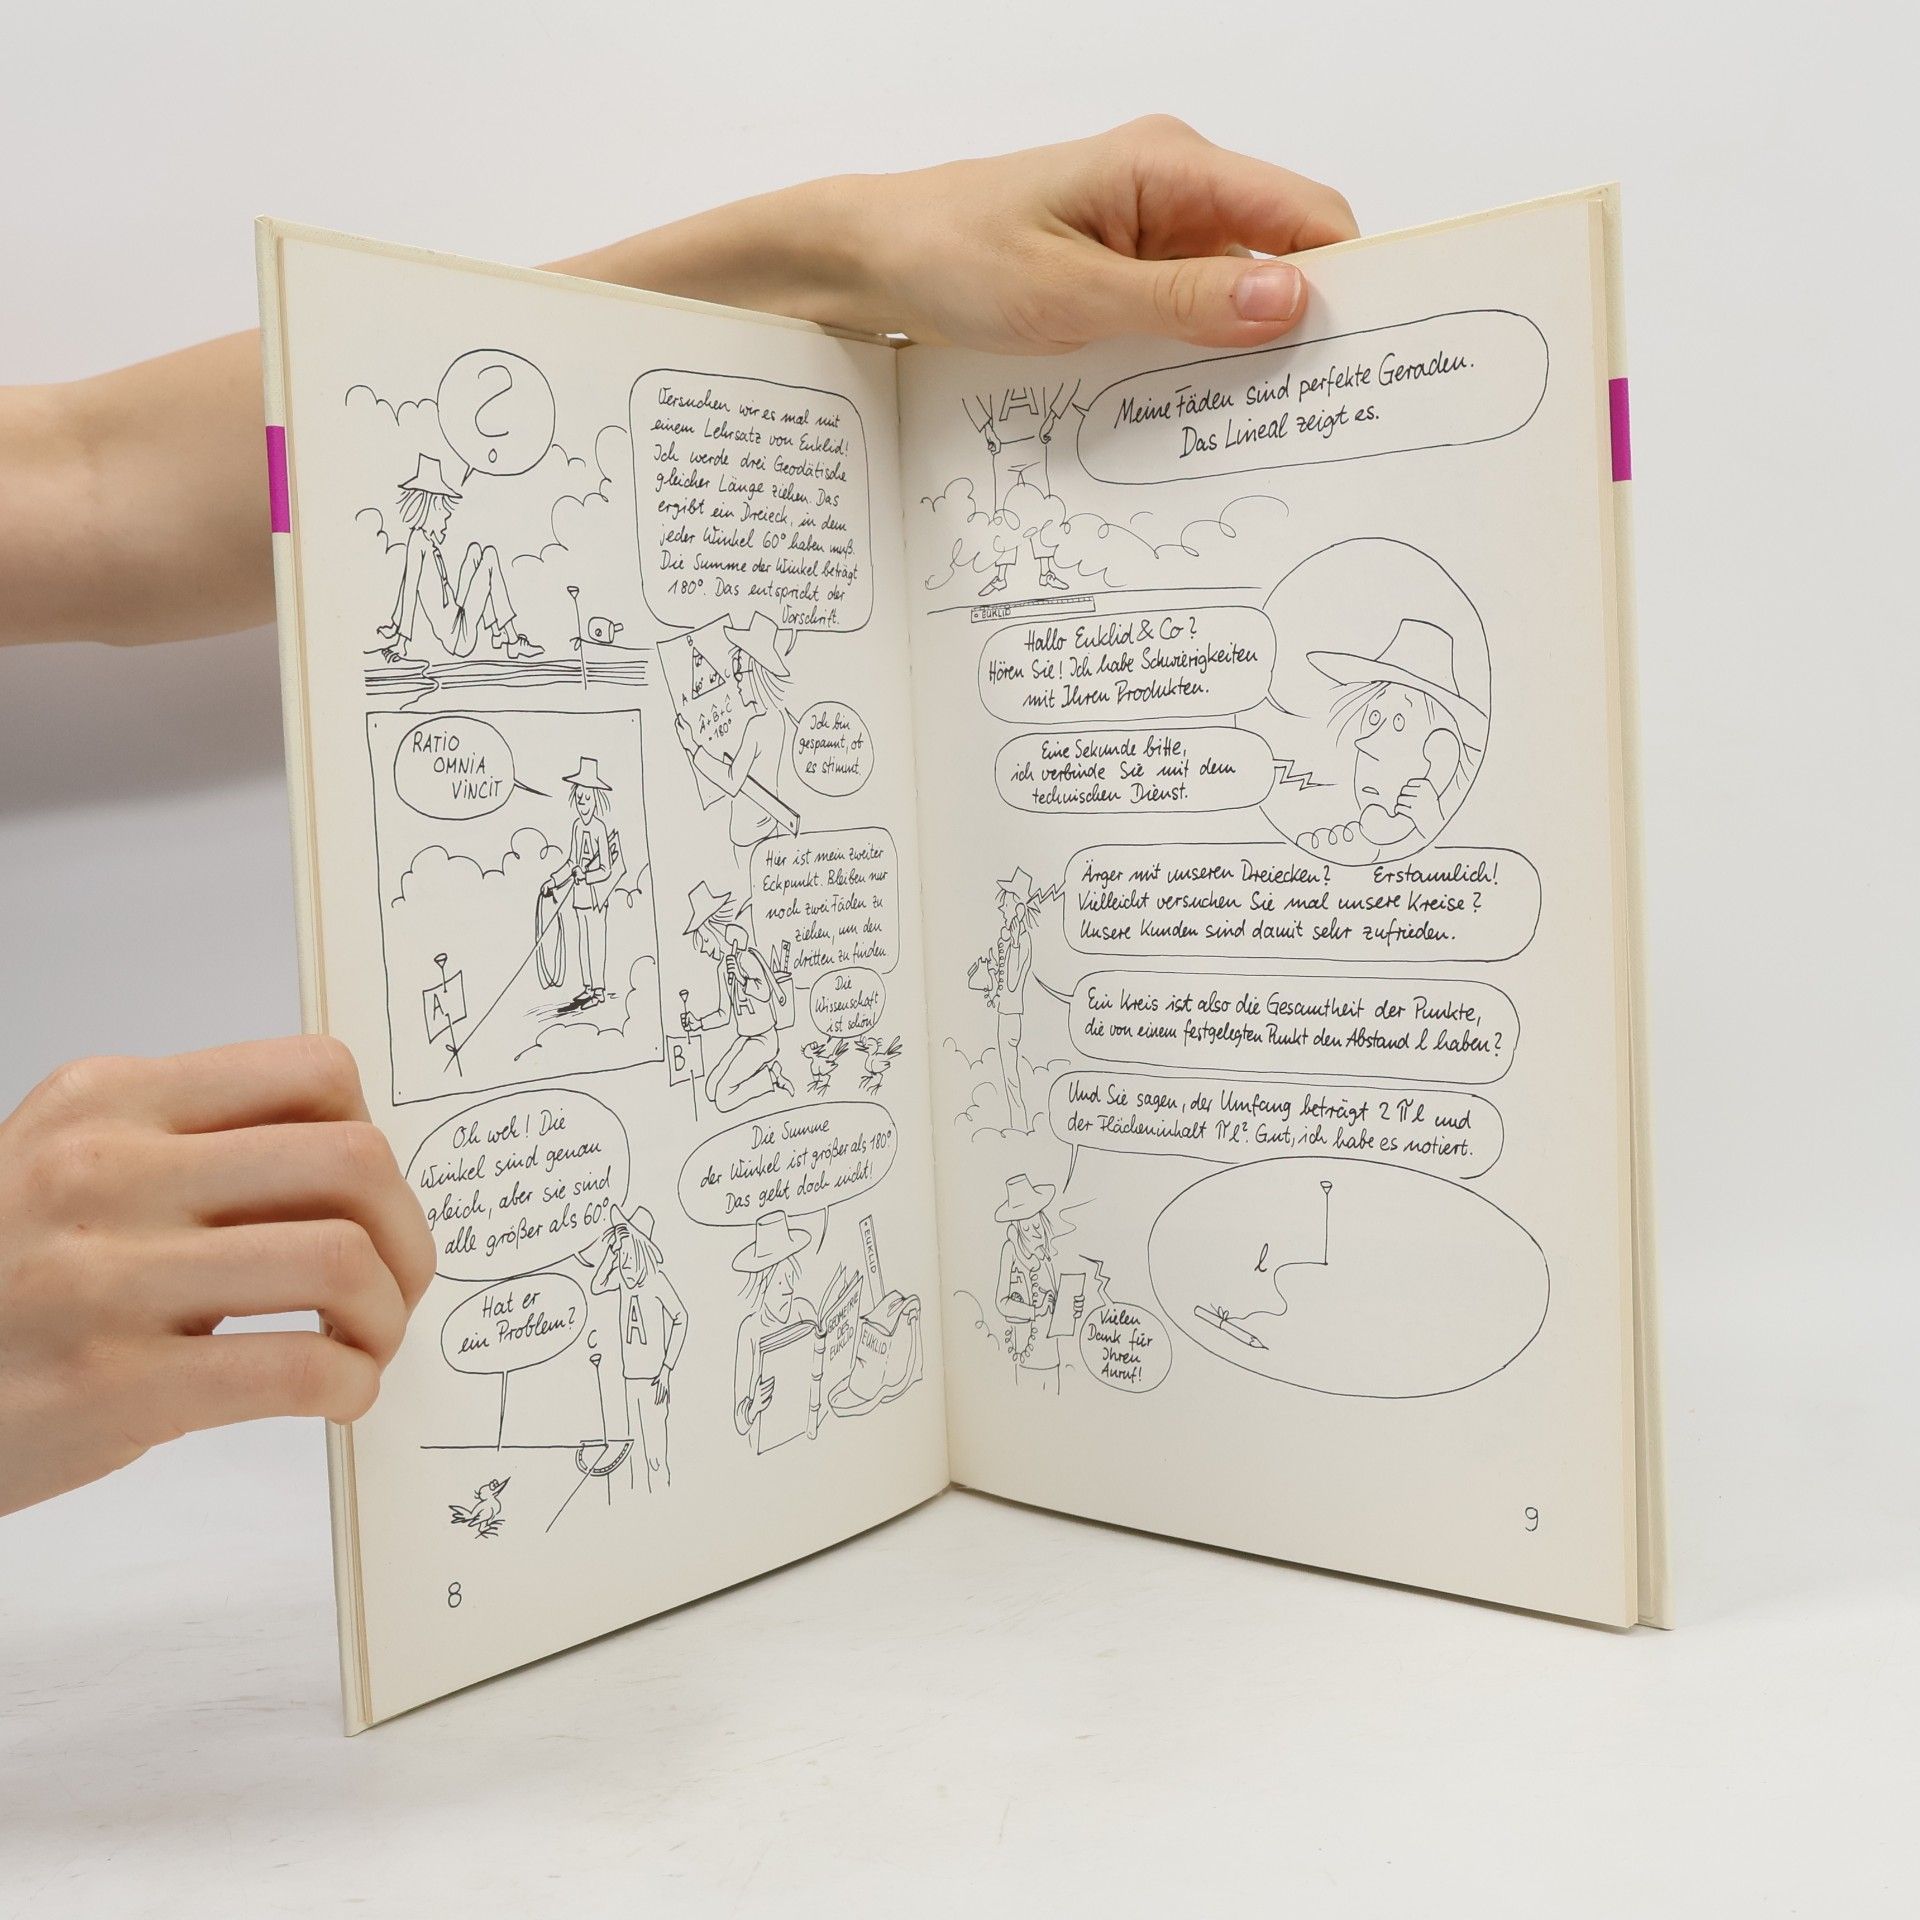 ?
Versuchen wir es mal mit
einem Lehrsatz von Euklid!
Ich werde drei Geodätische
gleicher Länge ziehen. Das
ergibt ein Dreieck, in dem
jeder Winkel 60° haben muß.
Die Summe der Winkel beträgt
180°. Das entspricht der
Vorschrift.
B
60° 60°
A C
Â+B̂+Ĉ
=180°
Ich bin
gespannt, ob
es stimmt.
RATIO
OMNIA
VINCIT
A
B
A
Hier ist mein zweiter
Eckpunkt. Bleiben nur
noch zwei Fäden zu
ziehen, um den
dritten zu finden
Die
Wissenschaft
ist schön!
A
B
Oh weh! Die
Winkel sind genau
gleich, aber sie sind
alle größer als 60°.
Hat er
ein Problem?
A
C
Die Summe
der Winkel ist größer als 180°.
Das geht doch nicht!
EUKLID
GEOMETRIE
DES
EUKLID
EUKLID
8
A
Meine Fäden sind perfekte Geraden.
Das Lineal zeigt es.
EUKLID
Hallo Euklid & Co?
Hören Sie! Ich habe Schwierigkeiten
mit Ihren Produkten.
Eine Sekunde bitte,
ich verbinde Sie mit dem
technischen Dienst.
Ärger mit unseren Dreiecken? Erstaunlich!
Vielleicht versuchen Sie mal unsere Kreise?
Unsere Kunden sind damit sehr zufrieden.
Ein Kreis ist also die Gesamtheit der Punkte,
die von einem festgelegten Punkt den Abstand l haben?
Und Sie sagen, der Umfang beträgt 2πl und
der Flächeninhalt πl². Gut, ich habe es notiert.
l
Vielen
Dank für
Ihren
Anruf!
9